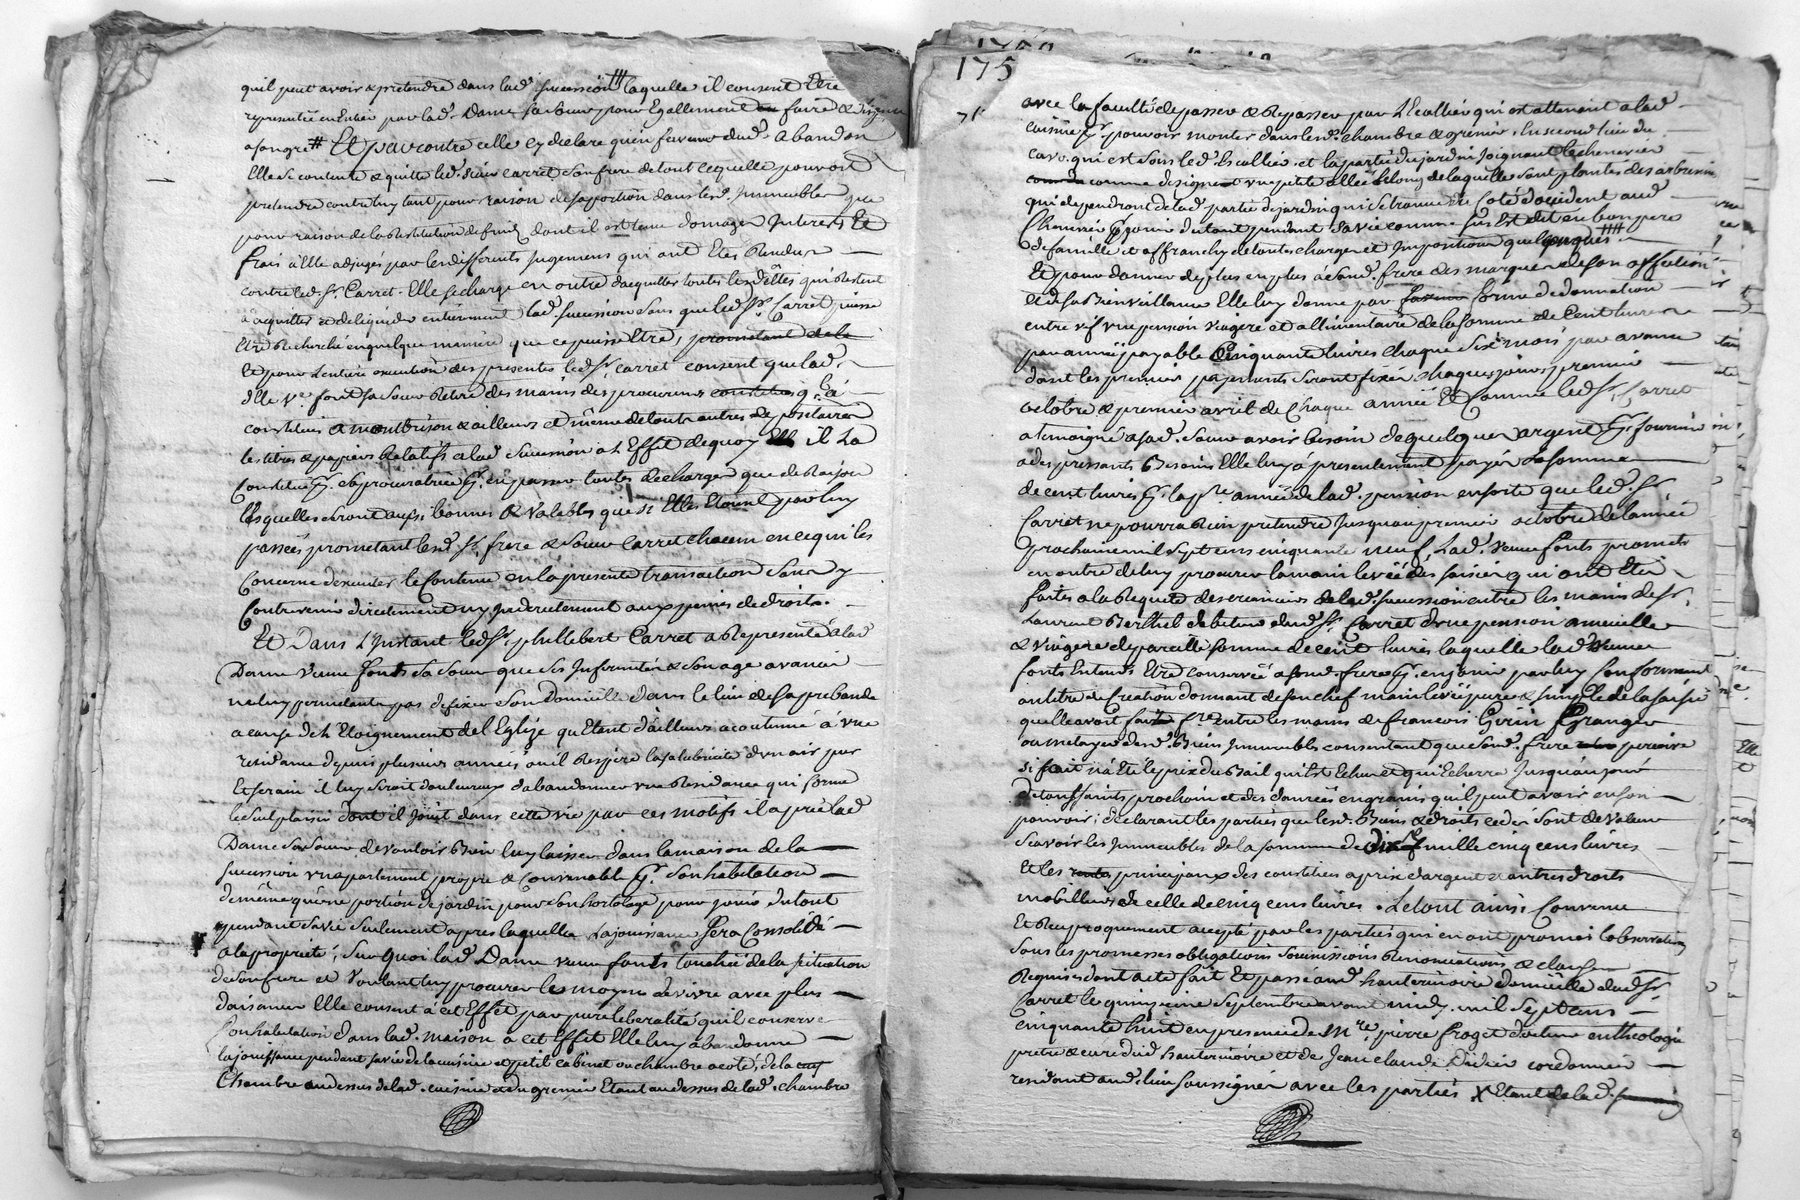 quil peut avoir & pretendre dans lad. succession laquelle il consent Etre
representée en Entier par lad. Dame sa sœur pour Egallement faire & disposer
a son gré # Et par contre celle cy declare qu'en faveur dud. abandon
Elle se contente & quitte led. sieur Carret son frere de tout ce quelle pouvoit
pretendre contre luy tant pour raison de sa portion dans lesd. Immeubles que
pour raison de la Restitution de fruits dont il est tenu domages Interets Et
frais à Elle adjugés par les differents Jugemens qui ont Etés Rendus
contre led. Sr. Carret. Elle se charge en outre d'acquitter toutes les dettes qui Restent
a acquitter & de liquider entierement lad. succession sans que led. Sr. Carret puisse
Etre Recherché en quelque maniere que ce puisse Etre, promettant de le
Et pour L'entiere execution des presentes led. Sr. Carret consent que lad.
d'lle Ve. font sa sœur Retire des mains des procureurs constitués
constitués a montbrison & ailleurs et même de tout autres depositaires
les titres & papiers Relatifs a lad. succession a L'Effet de quoy il La
Constitue sa procuratrice pr. en passer toutes decharges que de Raison
Lesquelles seront aussi bonnes & valables que si Elles Etoient par luy
passées promettant lesd. Srs. frere & sœur Carret chacun en ce qui les
Concerne d'executer le Contenu en la presente transaction sans y
Contrevenir directement ny Indirectement aux peines de droits.
Et Dans L'Instant led. Sr. phillibert Carret a Representé a lad.
Dame veuve fonts sa sœur que ses Infirmités & son age avancé
ne luy permettants pas de fixer son Domicille dans le lieu de sa prebande
a cause de L'Eloignement de L'Eglize qu'Etant d'ailleurs acoutumé à une
residance depuis plusieurs années ou il Respire la salubrité d'un air pur
Et serain il luy seroit douloureux d'abandonner une Residance qui forme
le seul plaisir dont il Jouit dans cette vie par ces motifs il a prié lad.
Dame sa sœur de vouloir Bien luy laisser dans la maison de la
succession un apartement propre & Convenable pr. son habitation
de même qu'une portion de jardin pour son hortolage pour jouir du tout
pendant sa vie seulement apres laquelle La jouissance sera Consolidé
a la proprieté, Sur Quoi lad. Dame veuve fonts touchée de la situation
de son frere et voulant luy procurer les moyens de vivre avec plus
d'aisance Elle consent à cet Effet par pure liberalité qu'il conserve
son habitation dans lad. maison à cet Effet Elle luy abandonne
la jouissance pendant sa vie de la cuisine et petit cabinet ou chambre a coté, de la
Chambre au dessus de lad. cuisine et du grenier Etant au dessus de lad. chambre
175
avec la faculté de passer & Repasser par L'Escallier qui est attenant a lad.
cuisine pr. pouvoir monter dans lesd. chambre & grenier,
cave qui est sous led. Escallier et la partie du jardin Joignant le chenevier
comme designé une petite allée le long de laquelle sont plantés des arbres
qui dependront de lad. partie de jardin qui se trouve du Coté d'occident aud.
Chenevier pr. jouir du tout pendant sa vie comme sus Est dit en bon pere
de famille et affranchy de toutes charges et Impositions quelconques
Et pour donner de plus en plus à sond. frere des marques de son affection
& de sa Bienveillance Elle luy donne par forme de donation
entre vifs une pension viagere et allimentaire de la somme de Cent livres
par année payable Cinquante livres chaque Six mois par avance
dont les premiers payements seront fixés chaques jours premier
octobre & premier avril de Chaque année Et Comme led. Sr. Carret
a temoigné a sad. sœur avoir besoin de quelque argent pr. fournir
a des pressants Besoins Elle luy à presentement payés La somme
de cent livres pr. la pre. année de lad. pension ensorte que led. Sr.
Carret ne pourra Rien pretendre Jusqu'au premier octobre de l'année
prochaine mil sept cens cinquante neuf. Lad. veuve fonts promet
en outre de luy procurer la main levéé des saisies qui ont Eté
faites a la Requete des creanciers de lad. succession entre les mains de Sr.
Laurent Berthel debiteur dud. Sr. Carret d'une pension annuelle
& viagere de pareille somme de cent livres laquelle lad. veuve
fonts Entend Etre conservée a sond. frere pr. en jouir par luy Conformement
au titre de Creation donnant de son chef mainlevéé pure & simple de la saisie
quelle avoit faite entre les mains de francois Girin Granger
ou metayer desd. Biens Immeubles consentant que sond. frere perçoive
si fait n'a Eté le prix du Bail qui Est Echu et qui Echerra Jusqu'au jour
de toussaints prochain et des danrées en grains qu'il peut avoir en son
pouvoir; declarant les parties que lesd. Biens & droits cedés sont de valeur
scavoir les Immeubles de la somme de mille cinq cens livres
Et les principaux des constitués a prix d'argent et autres droits
mobilliers de celle de cinq cens livres. Le tout ainsi Convenu
Et Reciproquement accepté par les parties qui en ont promis l'observation
sous les promesses obligations soumissions Renonciations & clauses
Requises dont acte fait Et passé aud. hauterivoire domicille dud. Sr.
Carret le quinzieme septembre avant midy mil sept cens
cinquante huit en presence de Mre. pierre froget docteur en theologie
pretre & curé dud. hauterivoire et de Jean claude Didier cordonnier
residant aud. lieu soussignés avec les parties X Etant de lad.